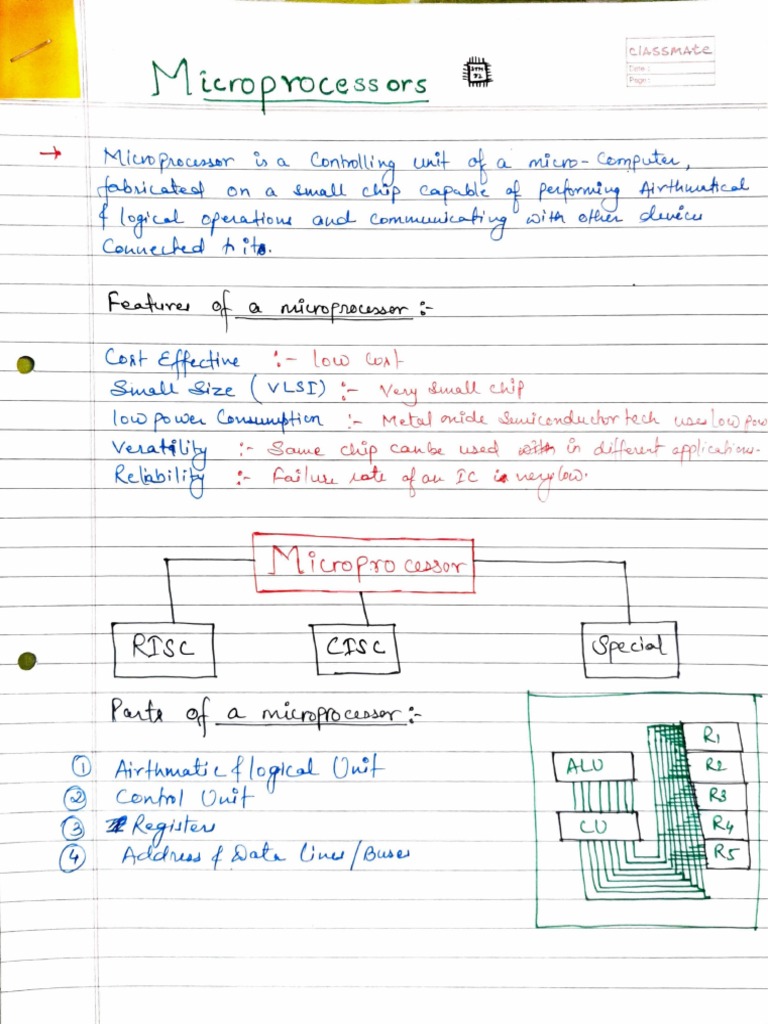 Microprocessors
classmate
Date :
Page :
→ Microprocessor is a Controlling unit of a micro-Computer,
fabricated on a small chip capable of performing Airthmatical
& logical operations and communicating with other device
Connected to it.
Features of a microprocessor :-
Cost Effective :- low cost
Small Size (VLSI) :- Very small chip
low power Consumption :- Metal oxide Semiconductor tech uses low pow
Veratility :- Same chip can be used in different applications.
Reliability :- Failure rate of an IC is very low.
Microprocessor
RISC CISC Special
Parts of a microprocessor :-
① Airthmatic & logical Unit
② Control Unit
③ Registers
④ Address & Data lines/Buses
ALU
CU
R1
R2
R3
R4
R5